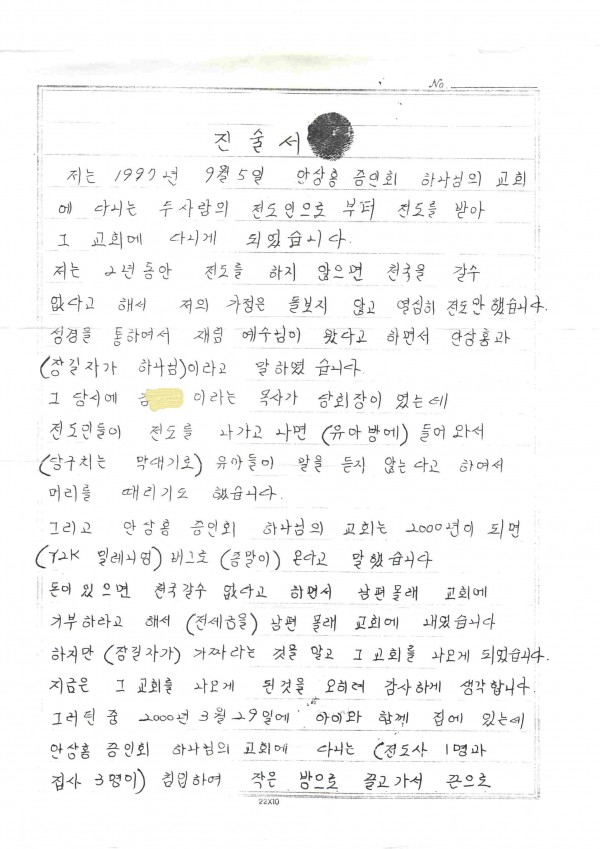 No.
진술서
저는 1997년 9월 5일 안상홍 증인회 하나님의 교회
에 다니는 두사람의 전도인으로 부터 전도를 받아
그 교회에 다니게 되었습니다.
저는 2년동안 전도를 하지 않으면 천국을 갈수
없다고 해서 저의 가정은 돌보지 않고 열심히 전도만 했습니다.
성경을 통하여서 재림 예수님이 왔다고 하면서 안상홍과
(장길자가 하나님)이라고 말하였습니다.
그 당시에 이라는 목사가 당회장이 였는데
전도인들이 전도를 나가고 나면 (유아방에) 들어 와서
(당구치는 막대기로) 유아들이 말을 듣지 않는다고 하여서
머리를 때리기도 했습니다.
그리고 안상홍 증인회 하나님의 교회는 2000년이 되면
(Y2K 밀레니엄) 버그로 (종말이) 온다고 말했습니다
돈이 있으면 천국갈수 없다고 하면서 남편몰래 교회에
거부하라고 해서 (전세금을) 남편 몰래 교회에 내었습니다
하지만 (장길자가) 가짜라는 것을 알고 그 교회를 나오게 되었습니다.
지금은 그 교회를 나오게 된것을 오히려 감사하게 생각합니다.
그러던 중 2000년 3월 29일에 아이와 함께 집에 있는데
안상홍 증인회 하나님의 교회에 다니는 (전도사 1명과
집사 3명이) 침입하여 작은 방으로 끌고가서 끈으로
22X10